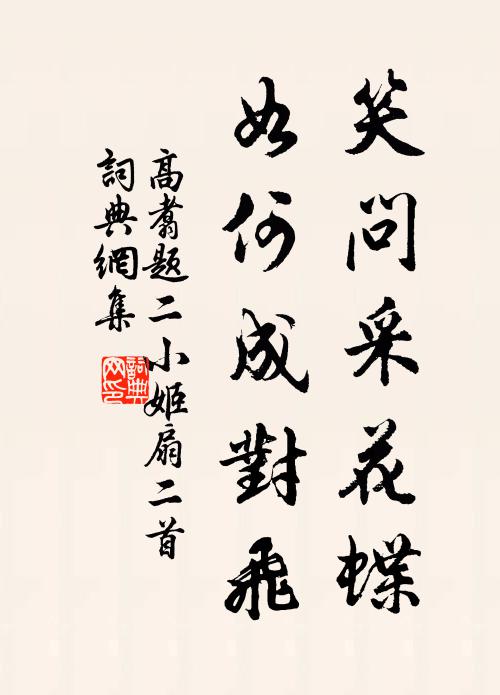 笑問采花蝶
如何成對飛
高翥題二小姬扇二首
詞典網集
詞典網印